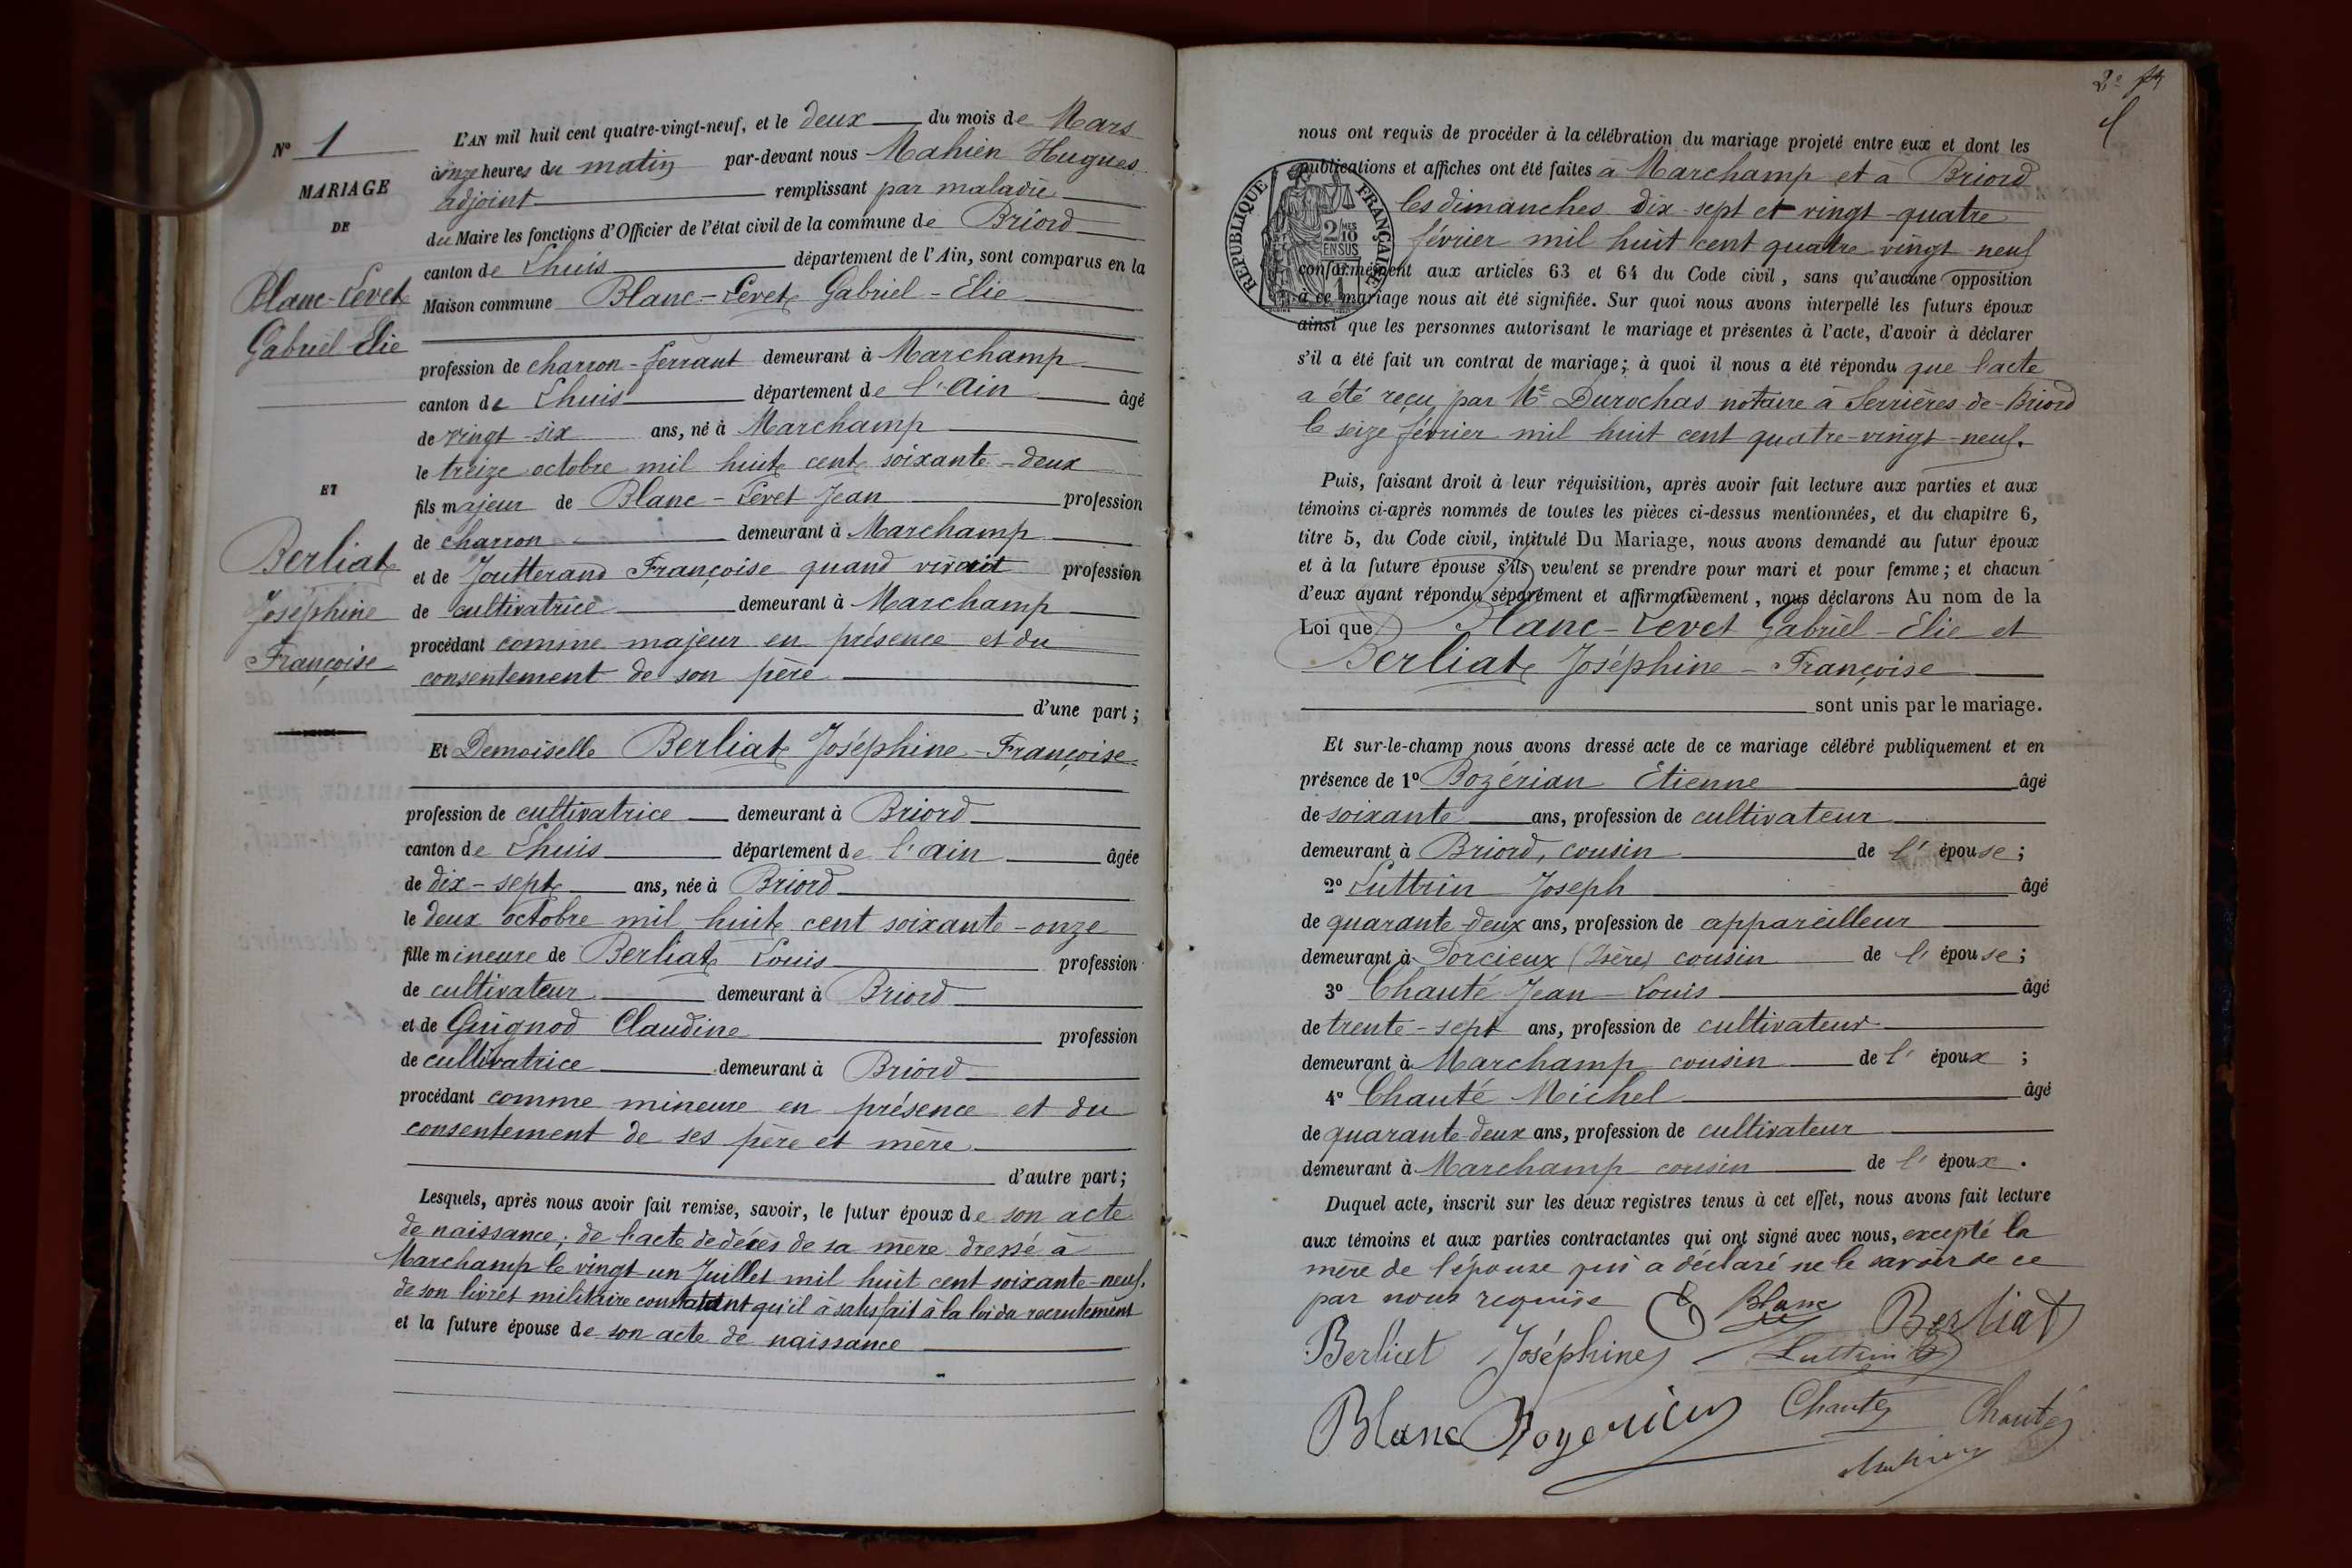 Nº 1
MARIAGE
DE
Blanc-Levet
Gabriel Elie
ET
Berliat
Joséphine
Françoise
L'AN mil huit cent quatre-vingt-neuf, et le deux du mois de Mars
à onze heures du matin par-devant nous Mahien Hugues
adjoint remplissant par maladie
du Maire les fonctions d'Officier de l'état civil de la commune de Briord
canton de Lhuis département de l'Ain, sont comparus en la
Maison commune Blanc-Levet Gabriel-Elie
profession de charron-ferrant demeurant à Marchamp
canton de Lhuis département de l'Ain âgé
de vingt-six ans, né à Marchamp
le treize octobre mil huit cent soixante-deux
fils majeur de Blanc-Levet Jean profession
de charron demeurant à Marchamp
et de Joutterand Françoise quand vivait profession
de cultivatrice demeurant à Marchamp
procédant comme majeur en présence et du
consentement de son père
d'une part ;
Et Demoiselle Berliat Joséphine-Françoise
profession de cultivatrice demeurant à Briord
canton de Lhuis département de l'Ain âgée
de dix-sept ans, née à Briord
le deux octobre mil huit cent soixante-onze
fille mineure de Berliat Louis profession
de cultivateur demeurant à Briord
et de Guignod Claudine profession
de cultivatrice demeurant à Briord
procédant comme mineure en présence et du
consentement de ses père et mère
d'autre part ;
Lesquels, après nous avoir fait remise, savoir, le futur époux de son acte
de naissance ; de l'acte de décès de sa mère dressé à
Marchamp le vingt-un Juillet mil huit cent soixante-neuf.
de son livret militaire constatant qu'il à satisfait à la loi du recrutement
et la future épouse de son acte de naissance
2e
nous ont requis de procéder à la célébration du mariage projeté entre eux et dont les
publications et affiches ont été faites à Marchamp et à Briord
les dimanches dix-sept et vingt-quatre
février mil huit cent quatre vingt-neuf
REPUBLIQUE FRANÇAISE
2 MES
10
EN SUS
conformément aux articles 63 et 64 du Code civil, sans qu'aucune opposition
à ce mariage nous ait été signifiée. Sur quoi nous avons interpellé les futurs époux
ainsi que les personnes autorisant le mariage et présentes à l'acte, d'avoir à déclarer
s'il a été fait un contrat de mariage ; à quoi il nous a été répondu que l'acte
a été reçu par Me Durochas notaire à Serrières-de-Briord
le seize février mil huit cent quatre-vingt-neuf.
Puis, faisant droit à leur réquisition, après avoir fait lecture aux parties et aux
témoins ci-après nommés de toutes les pièces ci-dessus mentionnées, et du chapitre 6,
titre 5, du Code civil, intitulé Du Mariage, nous avons demandé au futur époux
et à la future épouse s'ils veulent se prendre pour mari et pour femme ; et chacun
d'eux ayant répondu séparément et affirmativement, nous déclarons Au nom de la
Loi que Blanc-Levet Gabriel-Elie et
Berliat Joséphine-Françoise
sont unis par le mariage.
Et sur-le-champ nous avons dressé acte de ce mariage célébré publiquement et en
présence de 1º Bozérian Etienne âgé
de soixante ans, profession de cultivateur
demeurant à Briord, cousin de l'épouse ;
2º Luttrin Joseph âgé
de quarante-deux ans, profession de appareilleur
demeurant à Porcieux (Isère) cousin de l'épouse ;
3º Chanté Jean-Louis âgé
de trente-sept ans, profession de cultivateur
demeurant à Marchamp cousin de l'époux ;
4º Chanté Michel âgé
de quarante-deux ans, profession de cultivateur
demeurant à Marchamp cousin de l'époux.
Duquel acte, inscrit sur les deux registres tenus à cet effet, nous avons fait lecture
aux témoins et aux parties contractantes qui ont signé avec nous, excepté la
mère de l'épouse qui a déclaré ne le savoir de ce
par nous requise
E Blanc Berliat
Berliat Joséphine Luttrin
Blanc Chanté Chanté